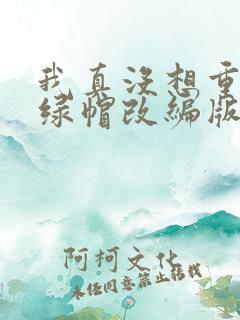 我真没想重
绿帽改编版
阿柯文化
未经同意禁止转载